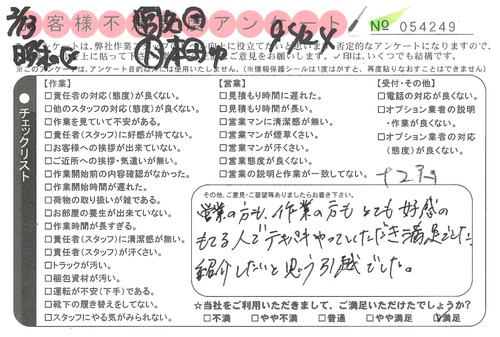 お客様不満度アンケート No 054249
2/13
ンケートは、弊社作業アップの
向上に役立てたいと思います。否定的なアンケートになりますので、
上に貼って下
ご意見をお願いします。✓印は、いくつでも結構です。
※このアンケートは、アンケート目的以外には使用いたしません。(※情報保護シールは1度はがすと、再度貼りなおすことはできません)
チェックリスト
【作業】
□責任者の対応(態度)が良くない。
□他のスタッフの対応(態度)が良くない。
□作業を見ていて不安がある。
□責任者(スタッフ)に好感が持てない。
□お客様への挨拶が出来ていない。
□ご近所への挨拶・気遣いが無い。
□作業開始前の内容確認がなかった。
□作業開始時間が遅れた。
□荷物の取り扱いが雑である。
□お部屋の養生が出来ていない。
□作業時間が長すぎる。
□責任者(スタッフ)に清潔感が無い。
□責任者(スタッフ)が汗くさい。
□トラックが汚い。
□梱包資材が汚い。
□運転が不安(下手)である。
□靴下の履き替えをしてない。
□スタッフにやる気がみられない。
【営業】
□見積もり時間に遅れた。
□見積もり時間が長い。
□営業マンに清潔感が無い。
□営業マンが煙草くさい。
□営業マンが汗くさい。
□営業態度が良くない。
□営業の説明と作業が一致してない。
【受付・その他】
□電話の対応が良くない。
□オプション業者の説明・作業が良くない。
□オプション業者の対応(態度)が良くない。
その他、ご意見・ご要望等ありましたらお書き下さい。
営業の方も、作業の方もとても好感の
もてる人でテキパキやっていただき満足でした。
紹介したいと思う引越でした。
☆当社をご利用いただきまして、ご満足いただけたでしょうか?
□不満 □やや不満 □普通 □やや満足 ☑満足